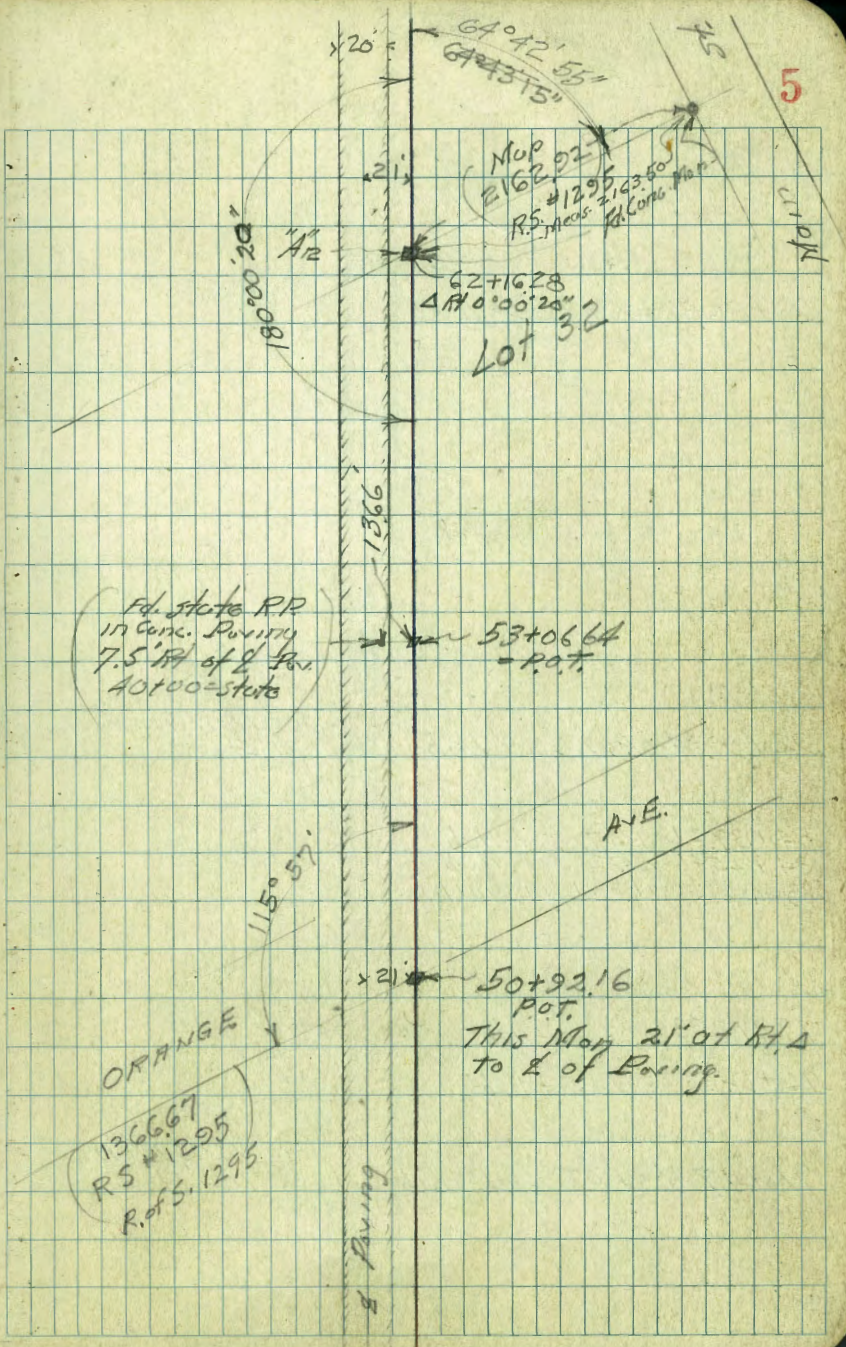 5
20'
64°42'55"
64°43'15"
St.
Main
21'
Map
2162.92
R.S. #1295
Meas. 2163.50
Fd. Conc. Mon.
180°00'20"
62+16.28
Δ Rt 0°00'20"
Lot 32
13.66'
Fd. State R.P.
in Conc. Paving
7.5' Rt of ℄ Pav.
40+00=State
53+06.64
= P.O.T.
AVE.
115°57'
21'
50+92.16
P.O.T.
This Mon 21' at Rt. Δ
to ℄ of Paving.
ORANGE
1366.67
RS #1295
R. of S. 1295
℄ Paving